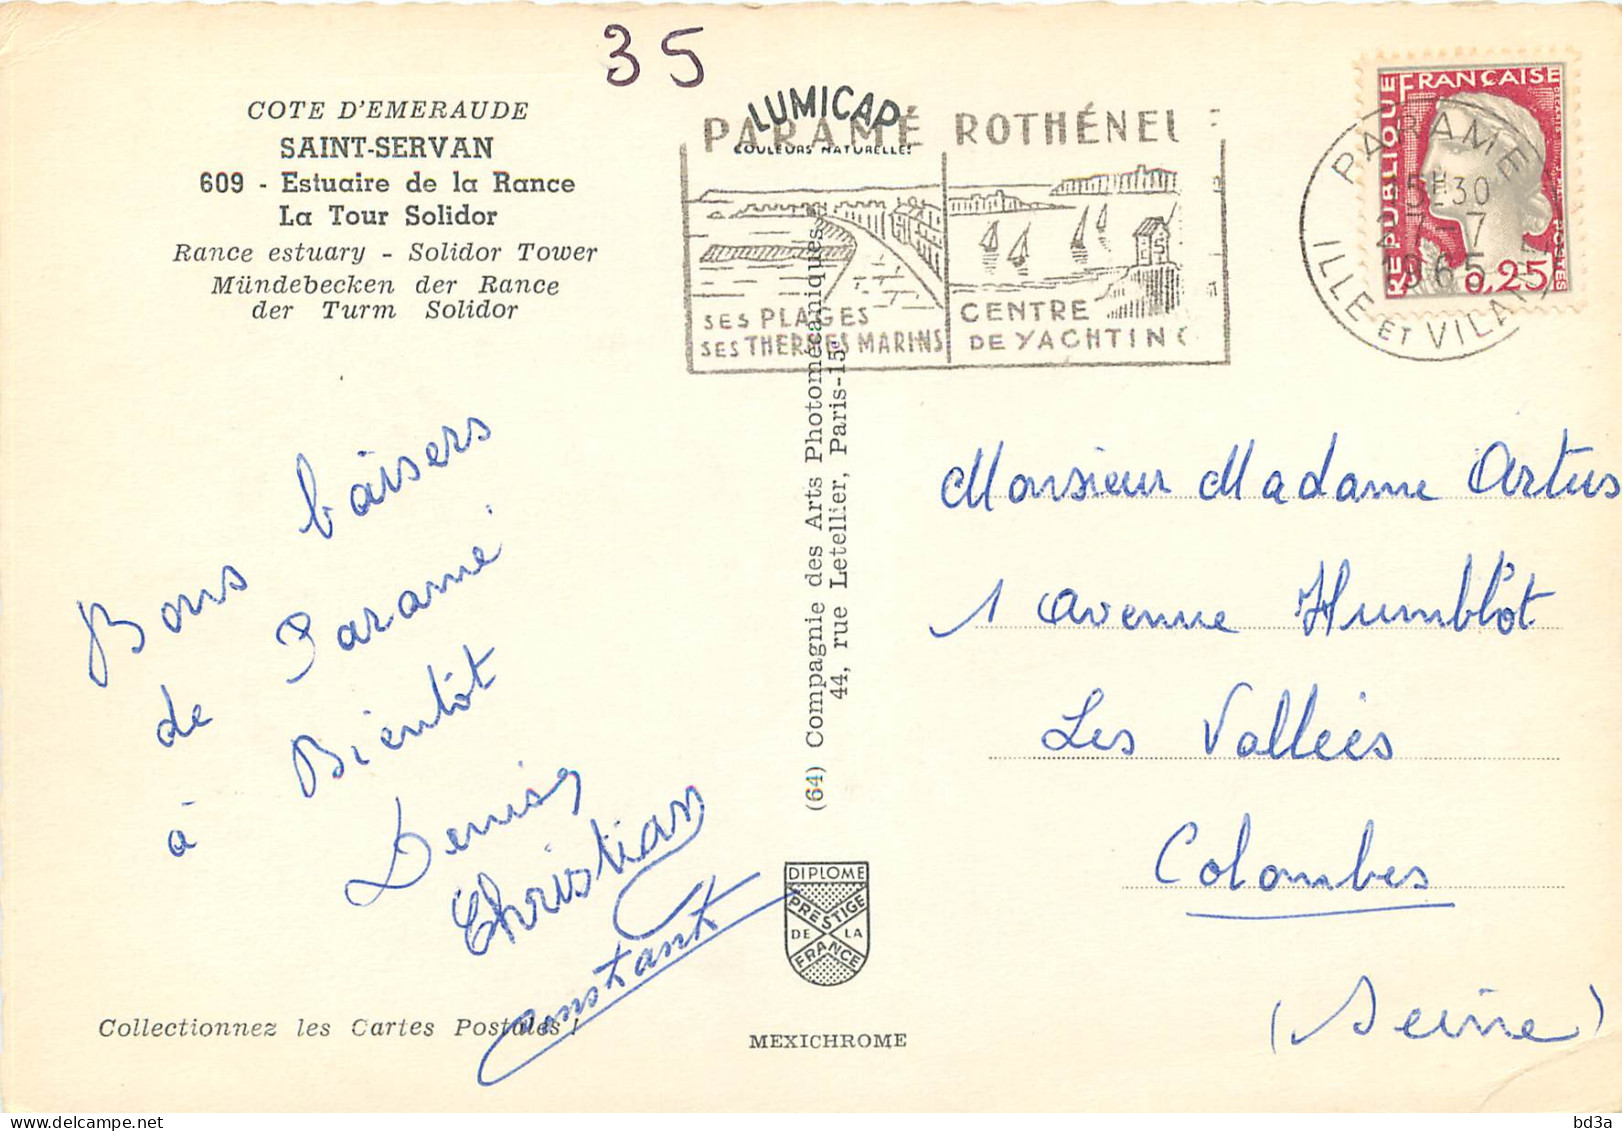 35
COTE D'EMERAUDE
SAINT-SERVAN
609 - Estuaire de la Rance
La Tour Solidor
Rance estuary - Solidor Tower
Mündebecken der Rance
der Turm Solidor
LUMICAP
COULEURS NATURELLES
PARAMÉ ROTHÉNEU
SES PLAGES
SES THERMES MARINS
CENTRE
DE YACHTING
PARAME
15H30
-7
1965
ILLE ET VILAINE
REPUBLIQUE FRANÇAISE
POSTES
0,25
Bons baisers
de Paramé
à Bientôt
Denis
Christian
Constant
Collectionnez les Cartes Postales !
(64) Compagnie des Arts Photomécaniques
44, rue Letellier, Paris-15e
DIPLOME
PRESTIGE
DE LA
FRANCE
MEXICHROME
Monsieur Madame Artus
1 avenue Humblot
Les Vallées
Colombes
(Seine)
bd3a